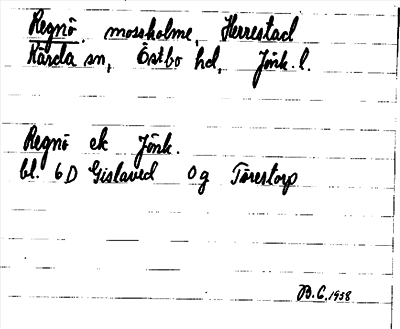 Regnö, mossholme, Herrestad
Kärda sn, Östbo hd, Jönk. l.
Regnö ek Jönk.
bl. 6D Gislaved 0g Törestorp
B.C. 1958